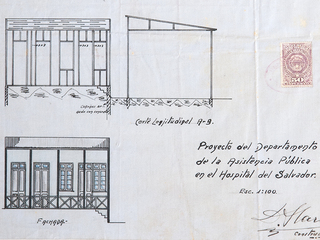 Corte Logitudinal A-B.
Proyecto del Departamento
de la Asistencia Pública
en el Hospital del Salvador.
Esc. 1:100.
FACHADA.
50